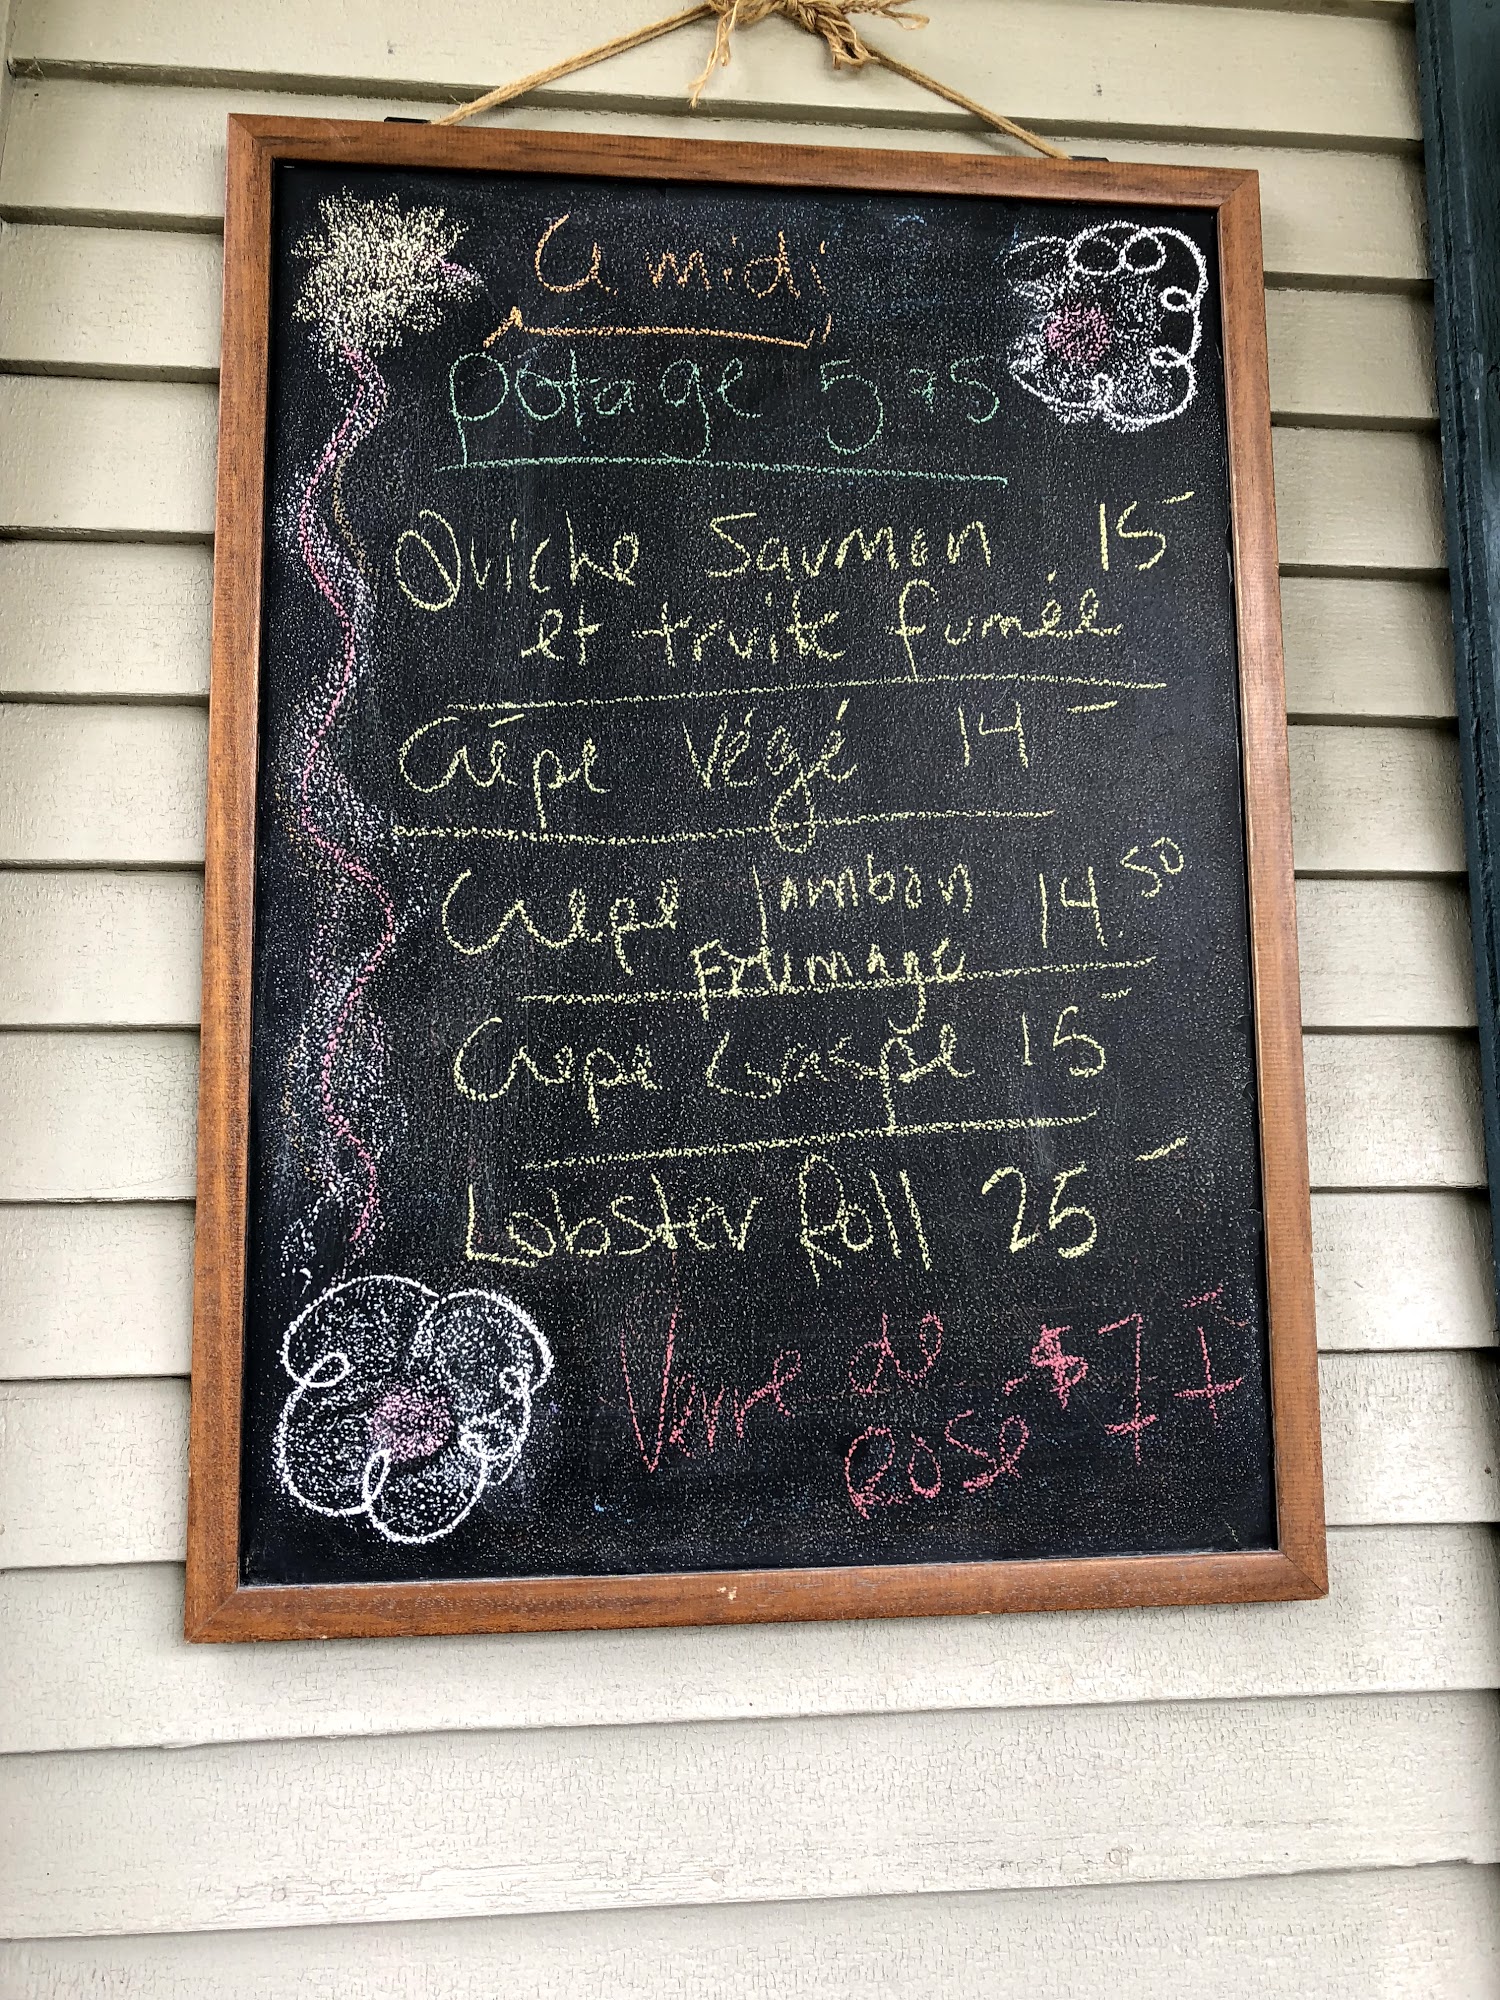 a midi
pôtage 5 75
Quiche Saumon 15 -
et truite fumée
Crêpe Végé 14 -
Crêpe Jambon 14.50
Fromage
Crepe Gaspe 15 -
Lobster Roll 25 -
Verre de
Rose $ 7